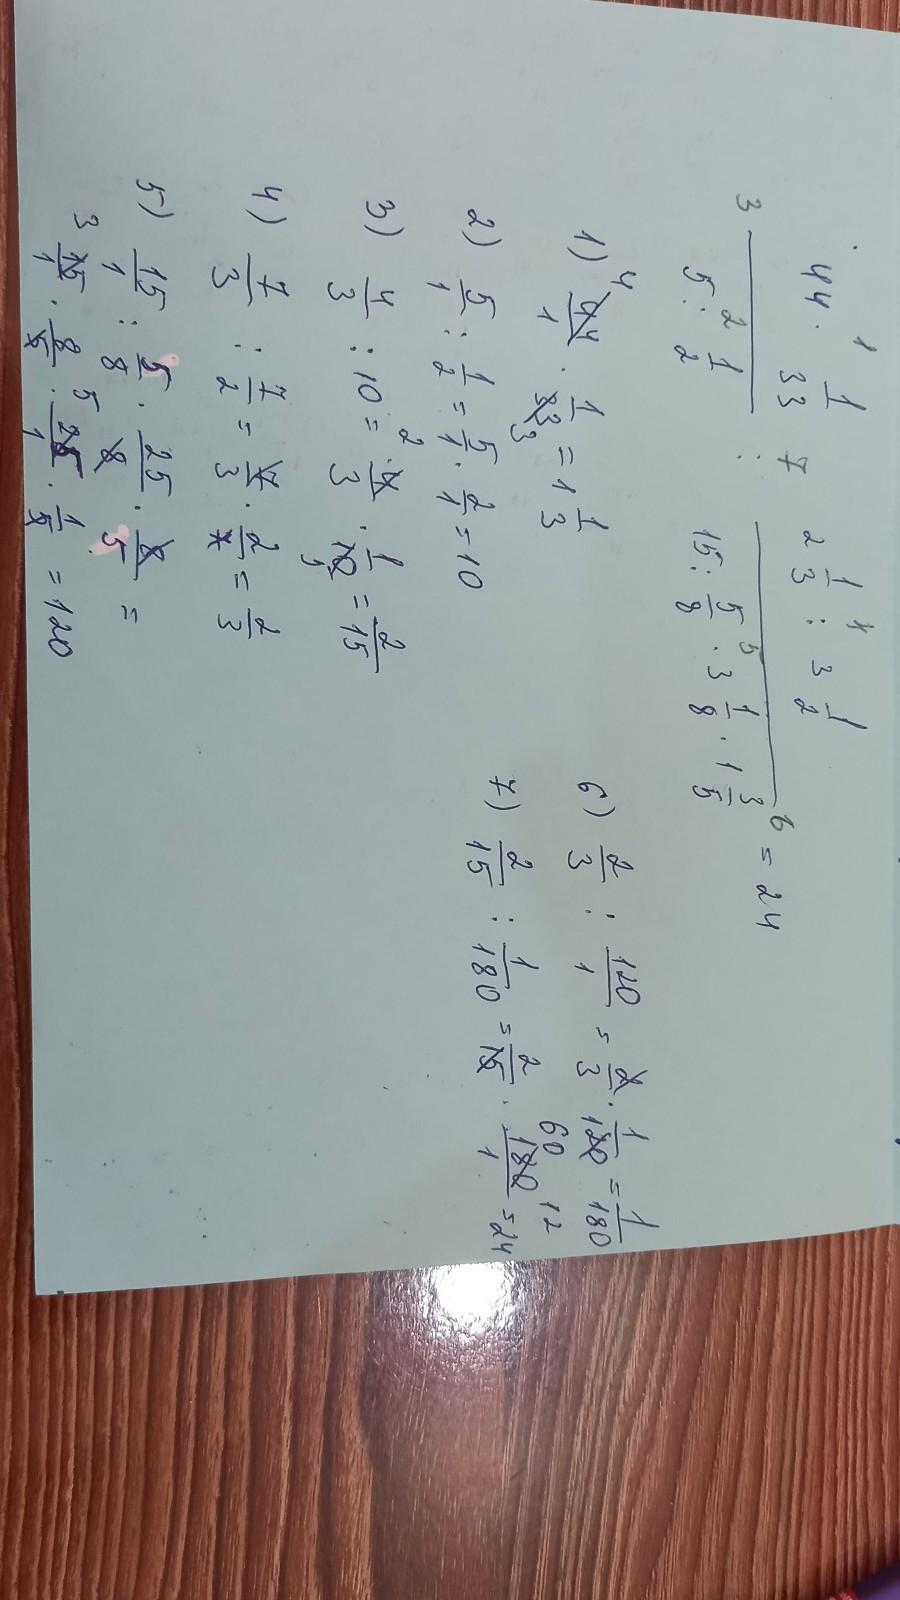 1 4
44 · 1/33 7 2 1/3 : 3 1/2
3 : 6 = 24
2 5 3
5 : 1/2 15 : 5/8 · 3 1/8 · 1 3/5
1) 4 44/1 · 1/33 3 = 1 1/3
2) 5/1 : 1/2 = 5/1 · 2/1 = 10
3) 4/3 : 10 = 2 4/3 · 1/10 5 = 2/15
4) 7/3 : 7/2 = 7/3 · 2/7 = 2/3
5) 15/1 : 5/8 · 25/8 · 8/5 =
3 15/1 · 8/5 · 5 25/1 · 1/5 = 120
6) 2/3 : 120/1 = 2/3 · 1/120 60 = 1/180
7) 2/15 : 1/180 = 2/15 · 180/1 12 = 24